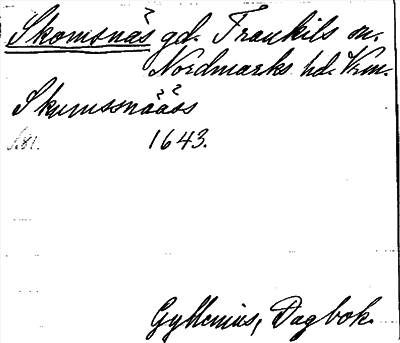 Skomsnäs gd. Trankils sn.
Nordmarks hd. Vrm.
Skumssnääss
S.81. 1643.
Gyllenius, Dagbok.